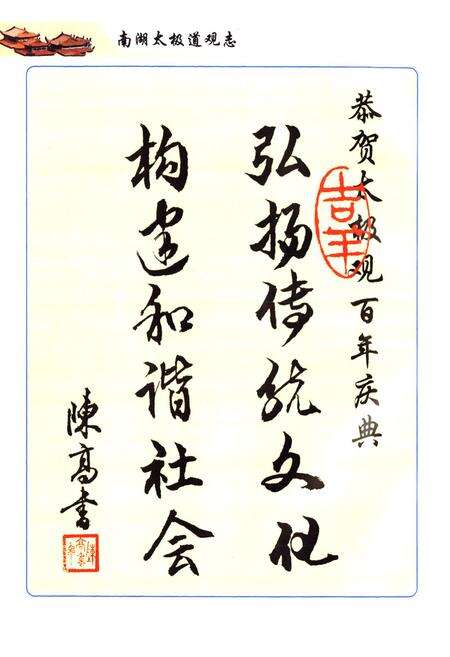 南湖太极道观志
恭贺太极观百年庆典
弘扬传统文化
构建和谐社会
陳高书